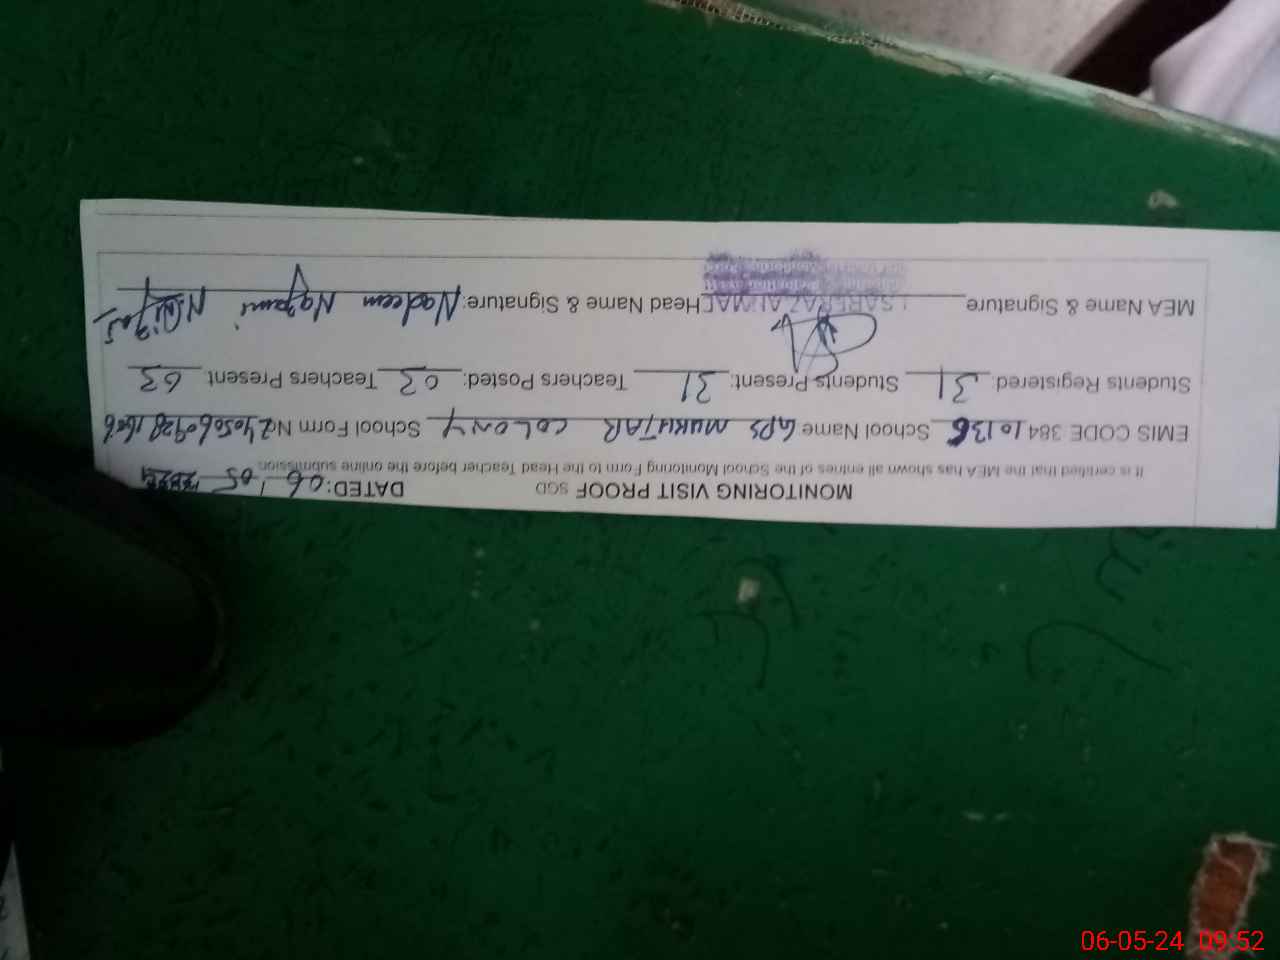 MONITORING VISIT PROOF SGD DATED: 06/05/2024
It is certified that the MEA has shown all entries of the School Monitoring Form to the Head Teacher before the online submission
EMIS CODE 384 10136 School Name GPS MUKHTAR COLONY School Form No
Students Registered: 31 Students Present: 31 Teachers Posted: 03 Teachers Present: 03
MEA Name & Signature SARFRAZ AHMAD Head Name & Signature: Nadeem
06-05-24 09:52